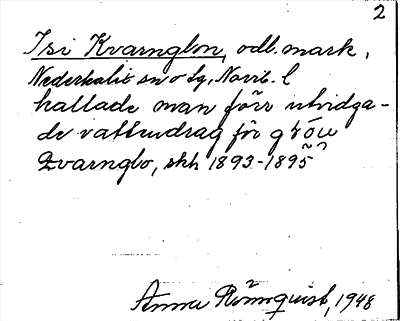 2
Isi Kvarnglon, odl. mark,
Nederkalix sn o sg, Norrb. l
kallade man förr utvidga-
de vattendrag för
Kvarnglo, skh 1893-1895
Anna Rönnquist, 1948